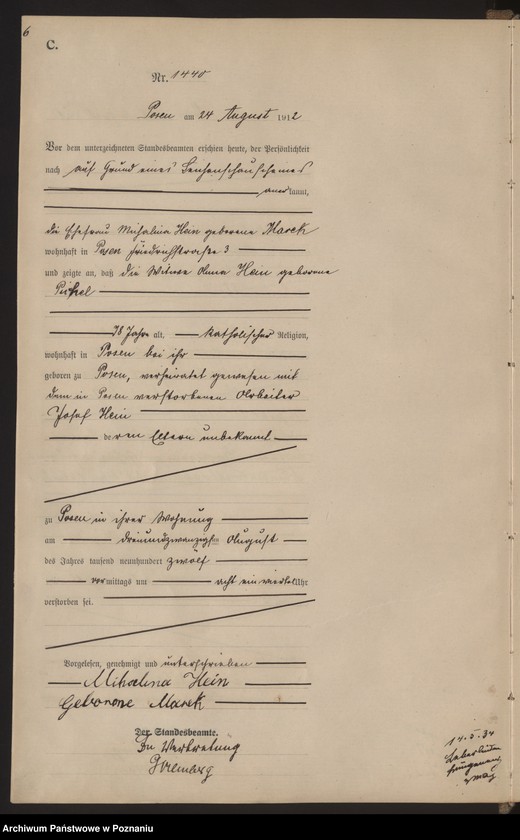 6
C.
Nr. 1440
Posen am 24 August 1912
Vor dem unterzeichneten Standesbeamten erschien heute, der Persönlichkeit
nach auf Grund eines Leichenschauscheines
anerkannt,
die Ehefrau Michalina Hain geborene Marek
wohnhaft in Posen Friedrichstraße 3
und zeigte an, daß die Witwe Anna Hein geborene
78 Jahre alt, katholischer Religion,
wohnhaft in Posen bei ihr
geboren zu Posen, verheiratet gewesen mit
dem in Posen verstorbenen Arbeiter
Josef Hein
deren Eltern unbekannt
zu Posen in ihrer Wohnung
am dreiundzwanzigsten August
des Jahres tausend neunhundert zwölf
vormittags um acht ein viertel Uhr
verstorben sei.
Vorgelesen, genehmigt und unterschrieben
Mihalina Hein
Geborone Marek
Der Standesbeamte.
In Vertretung
14. 5. 34
Archiwum Państwowe w Poznaniu